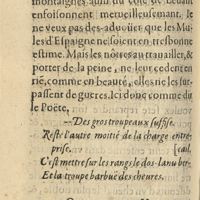 montaignes aussi du costé de deuant
enfoisonnent merueilleusement. Ie
ne veux pas des-aduoüer que les Mu-
les d'Espaigne ne soient en tresbonne
estime. Mais les nôtres au trauailler, &
porter de la peine, ne leur cedent en
rié, comme en beauté, elles ne les sur-
passent de guerres. Ici donc comme du
le Poëte,
--Des gros troupeaux suffise.
Reste l'autre moitié de la charge entre-
prise. [cail.
C'est mettre sur les rangs le dos-lanu ber-
Et la troupe barbuë des cheures.